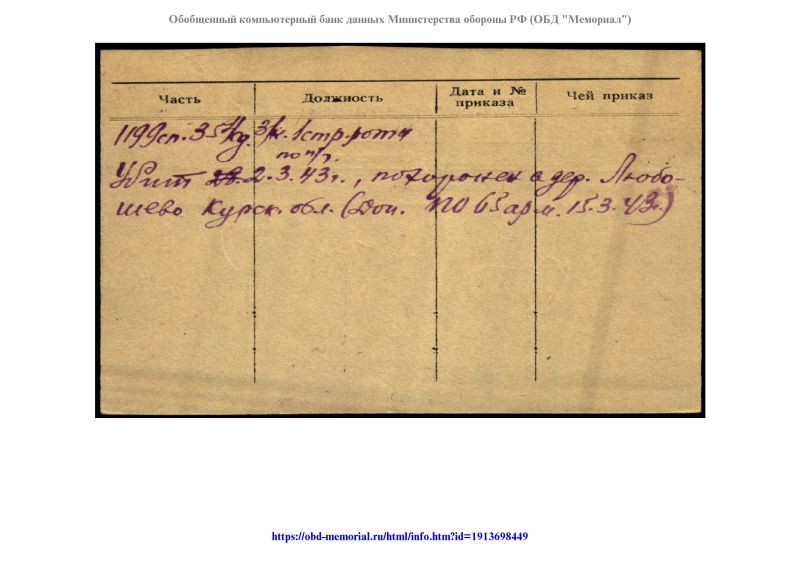 Обобщенный компьютерный банк данных Министерства обороны РФ (ОБД "Мемориал")
Часть Должность Дата и № приказа Чей приказ
1199сп. 354 з/к. 1 стр. роты
по п/ч.
Убит 2.3.43г., похоронен в дер. Любо-
шево Курск. обл. (Дон. ПО 65 арм. 15.3.43г.)
https://obd-memorial.ru/html/info.htm?id=1913698449